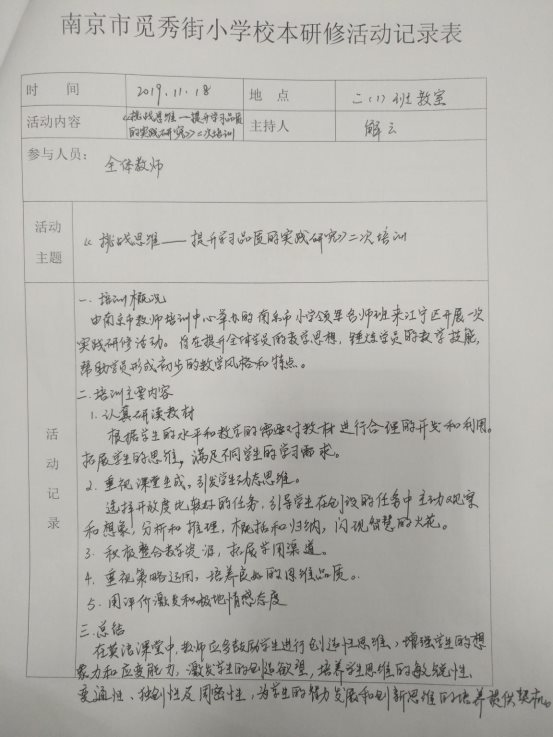 南京市觅秀街小学校本研修活动记录表
时 间 2019.11.18 地 点 二(1)班教室
活动内容 《挑战思维—提升学习品质的实践研究》二次培训 主持人 解云
参与人员：
全体教师
活动主题 《挑战思维——提升学习品质的实践研究》二次培训
活动记录
一、培训概况
由南京市教师培训中心举办的南京市小学领军名师班来江宁区开展一次
实践研修活动。旨在提升全体学员的教学思想，锤炼学员的教学技能，
帮助学员形成初步的教学风格和特点。
二、培训主要内容
1. 认真研读教材
根据学生的水平和教学的需要对教材进行合理的开发和利用。
拓展学生的思维，满足不同学生的学习需求。
2. 重视课堂生成，引发学生动态思维。
选择开放度比较好的任务，引导学生在创设的任务中主动观察
和想象，分析和推理，概括和归纳，闪现智慧的火花。
3. 积极整合教学资源，拓展学用渠道。
4. 重视策略运用，培养良好的思维品质。
5. 用评价激发积极地情感态度
三、总结
在英语课堂中，教师应多鼓励学生进行创造性思维，增强学生的想
象力和应变能力，激发学生的创造欲望，培养学生思维的敏锐性、
变通性、独创性及周密性，为学生的智力发展和创新思维的培养提供契机。